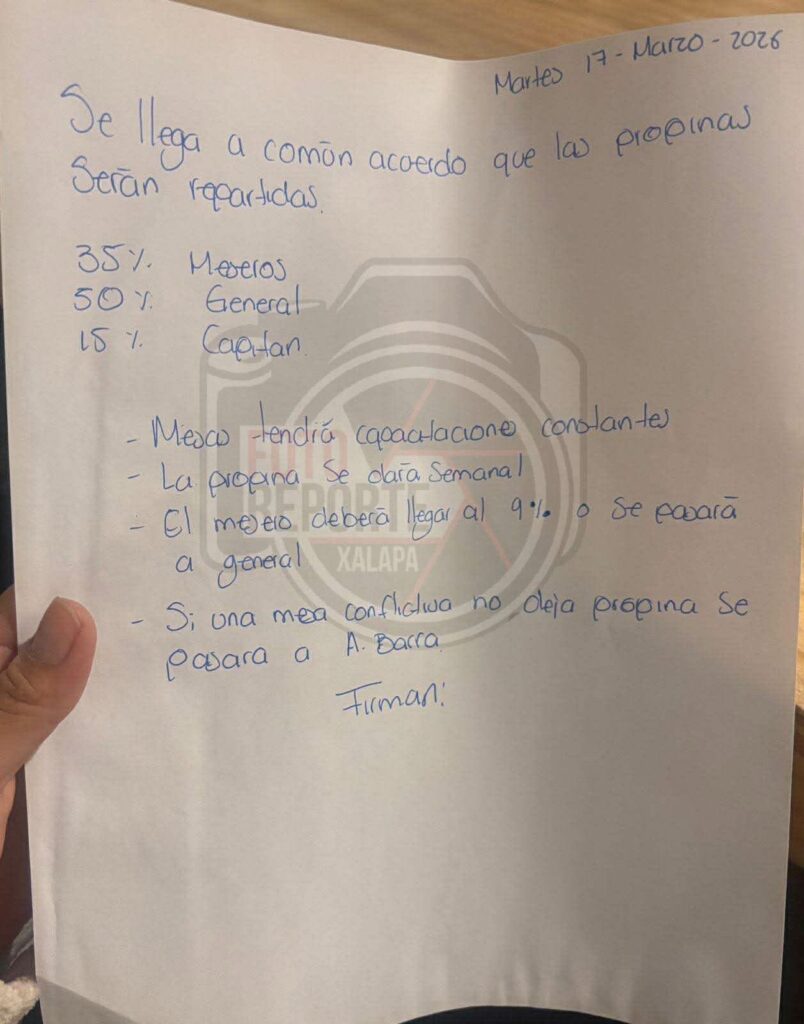 Martes 17-Marzo-2026
Se llega a común acuerdo que las propinas
Serán repartidas.
35% Meseros
50% General
15% Capitan.
- Mesero tendrá capacitaciones constantes
- La propina Se dará Semanal
- El mesero deberá llegar al 9% o Se pasará
a general
- Si una mesa conflictiva no deja propina Se
pasara a A. Barra.
Firman:
FOTO
REPORTE
XALAPA